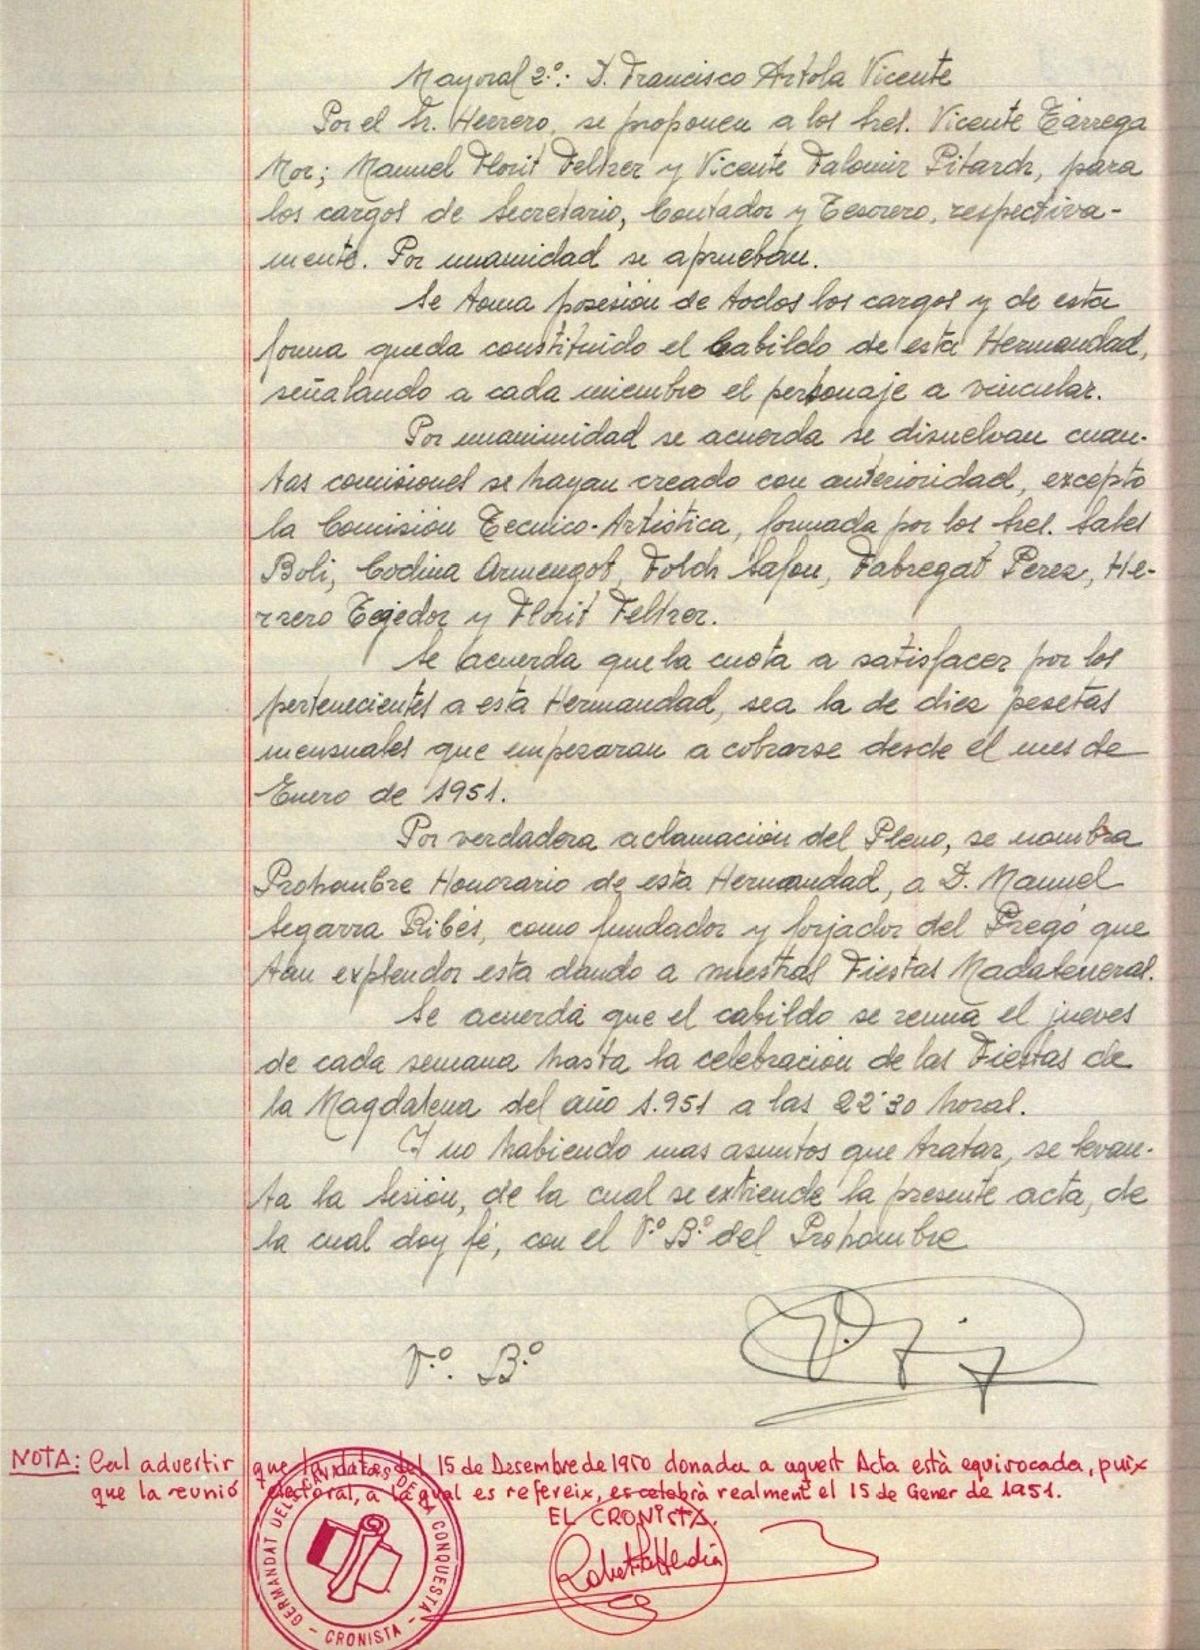 Mayoral 2º: D. Francisco Artola Vicente
Por el Sr. Herrero, se proponen a los Sres. Vicente Tárrega
Mor; Manuel Florit Feltrer y Vicente Falomir Pitarch, para
los cargos de Secretario, Contador y Tesorero, respectiva-
mente. Por unamidad se aprueban.
Se toma posesión de todos los cargos y de esta
forma queda constituido el Cabildo de esta Hermandad,
señalando a cada miembro el personaje a vincular.
Por unanimidad se acuerda se disuelvan cuan-
tas comisiones se hayan creado con anterioridad, excepto
la Comisión Tecnico-Artística, formada por los Sres. Sales
Boli, Codina Armengot, Folch Safon, Fabregat Perez, He-
rrero Tejedor y Florit Feltrer.
Se acuerda que la cuota a satisfacer por los
pertenecientes a esta Hermandad, sea la de diez pesetas
mensuales que empezaran a cobrarse desde el mes de
Enero de 1951.
Por verdadera aclamación del Pleno, se nombra
Prohombre Honorario de esta Hermandad, a D. Manuel
Segarra Ribés, como fundador y forjador del Pregó que
tan explendor esta dando a nuestras Fiestas Madaleneras.
Se acuerda que el cabildo se reuna el jueves
de cada semana hasta la celebración de las Fiestas de
la Magdalena del año 1.951 a las 22'30 horas.
Y no habiendo mas asuntos que tratar, se levan-
ta la sesión, de la cual se extiende la presente acta, de
la cual doy fé, con el Vº Bº del Prohombre
Vº. Bº
NOTA: Cal advertir que la data del 15 de Desembre de 1950 donada a aquest Acta està equivocada, puix
que la reunió electoral, a la qual es refereix, es celebrà realment el 15 de Gener de 1951.
EL CRONISTA.
GERMANDAT DELS CAVALLERS DE LA CONQUESTA - CRONISTA -